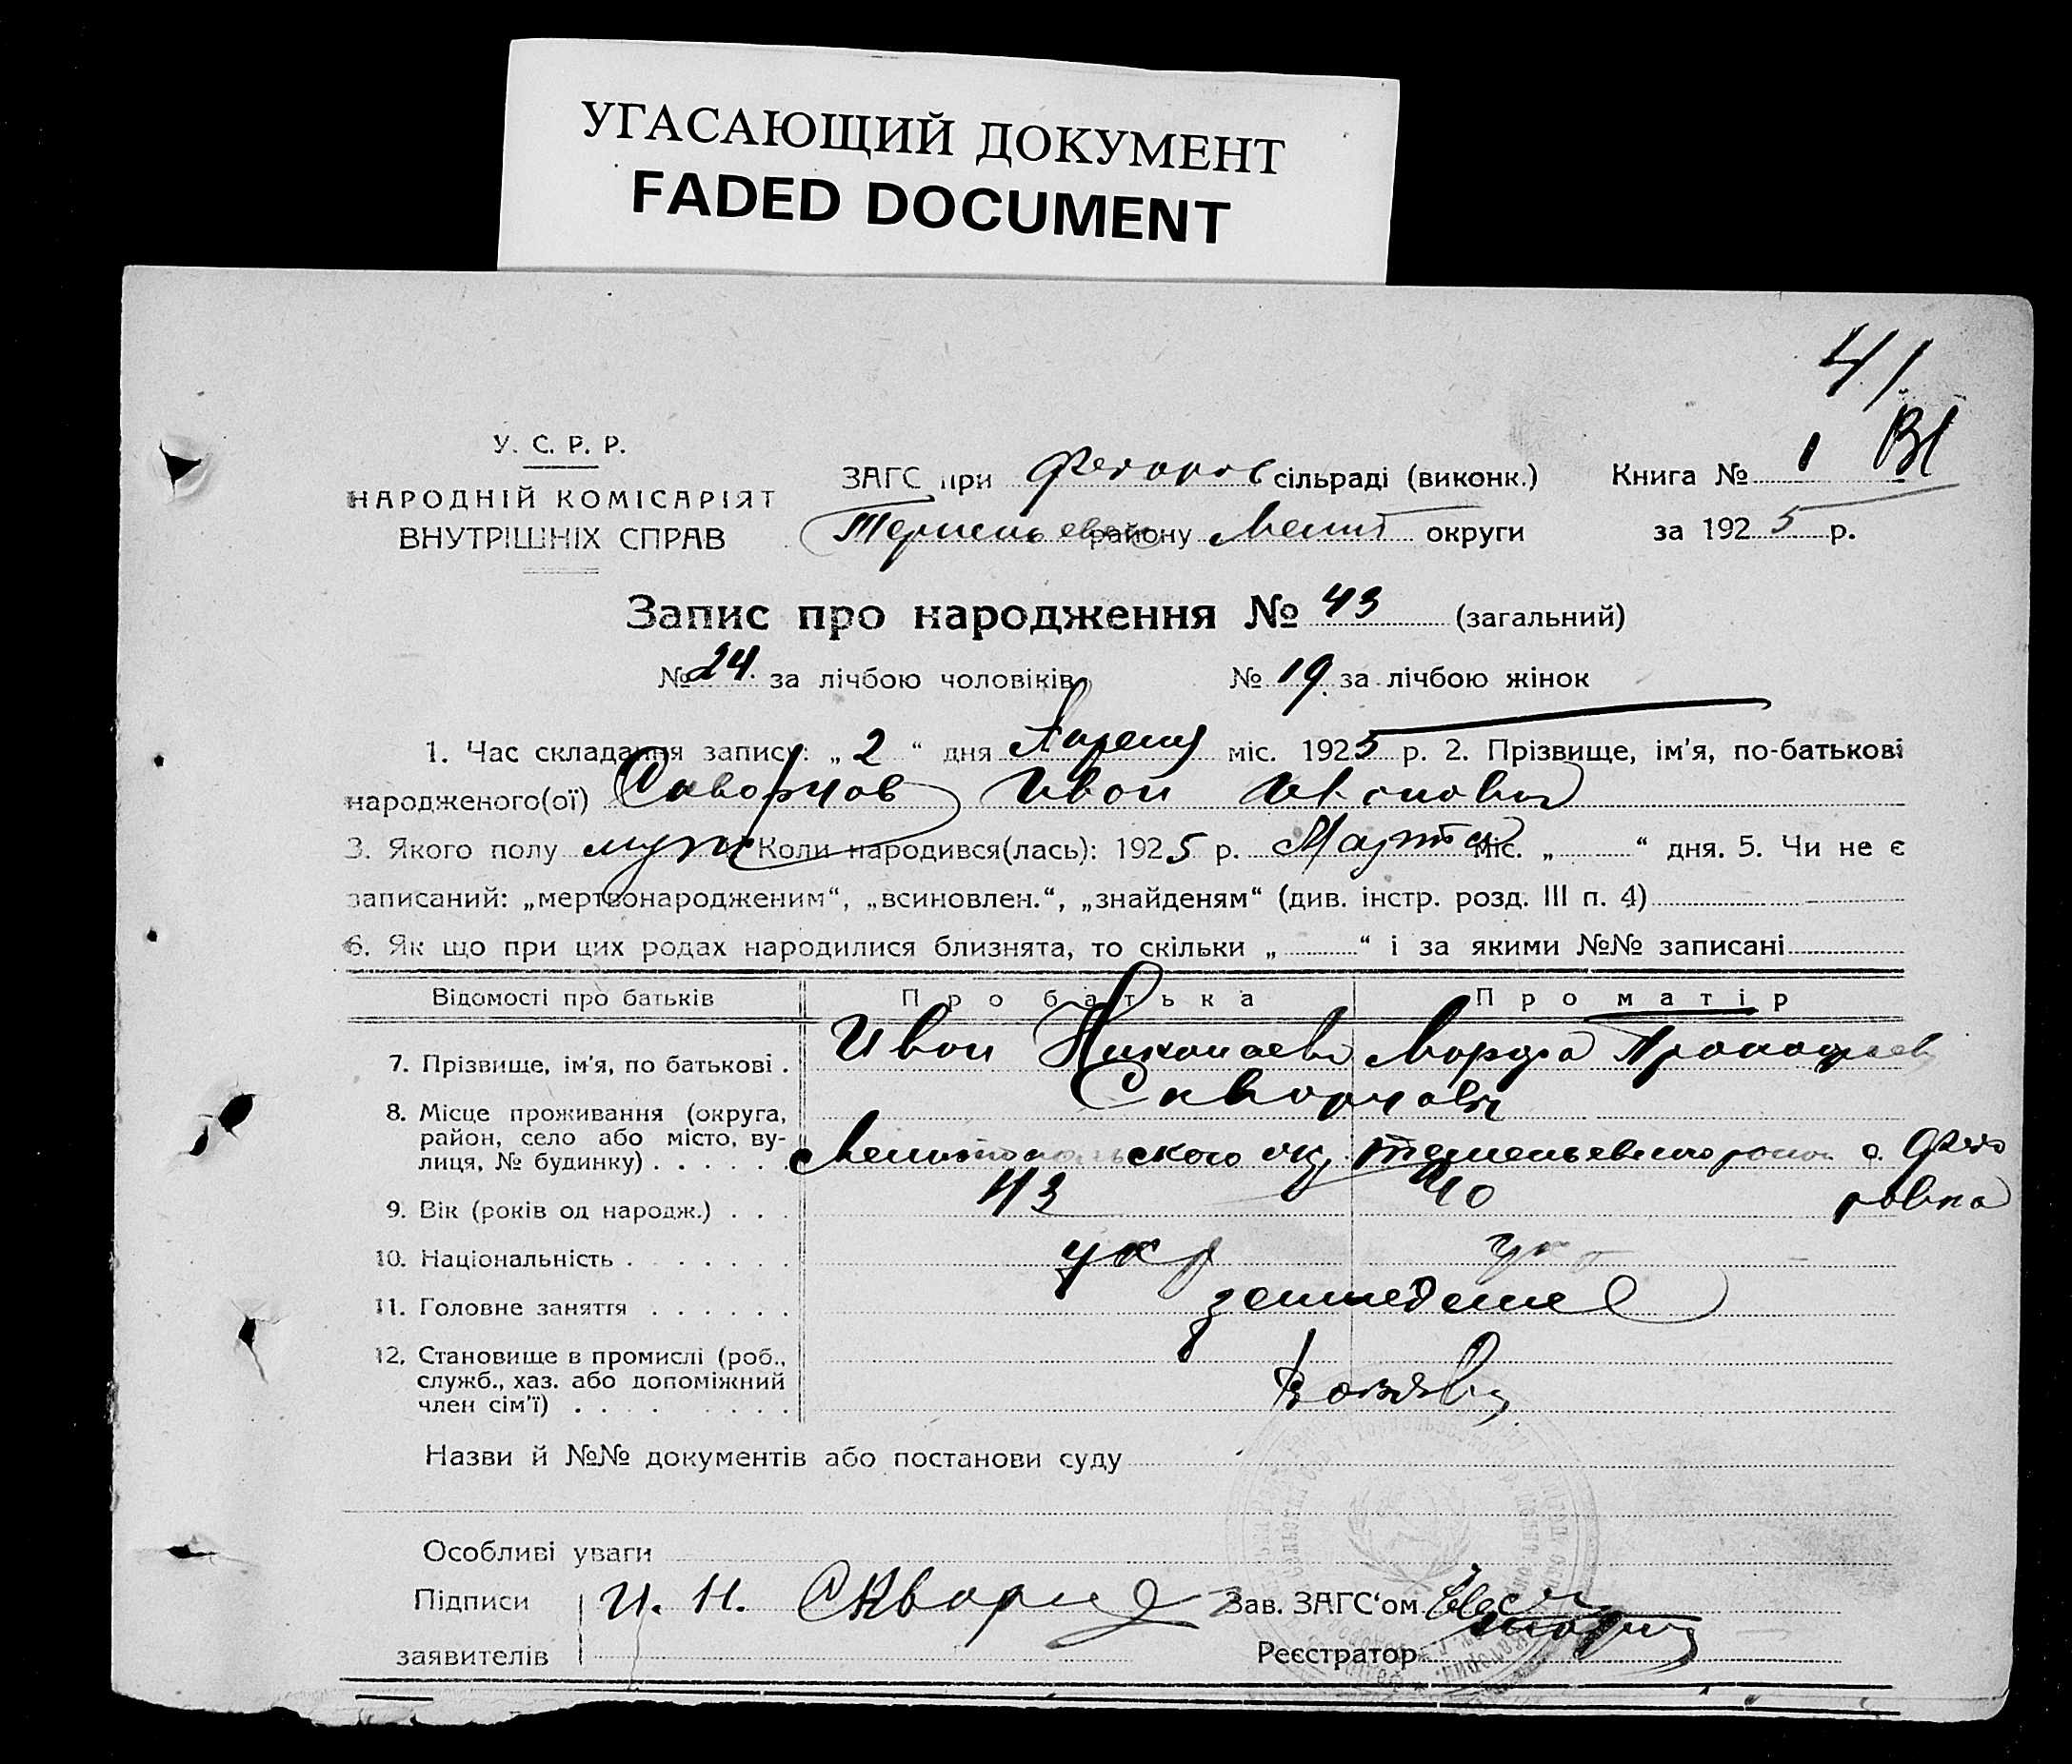 УГАСАЮЩИЙ ДОКУМЕНТ
FADED DOCUMENT
41.
У. С. Р. Р.
НАРОДНІЙ КОМІСАРІЯТ
ВНУТРІШНІХ СПРАВ
ЗАГС при Федоров сільраді (виконк.)
району Мелит округи
Книга № 1
за 1925 р.
Запис про народження № 43 (загальний)
№ 24. за лічбою чоловіків № 19. за лічбою жінок
1. Час складання запису: „2“ дня Апреля міс. 1925 р. 2. Прізвище, ім'я, по-батькові
народженого(ої) Скворцов Иван Иванович
3. Якого полу муж Коли народився(лась): 1925 р. Марта міс. „ “ дня. 5. Чи не є
записаний: „мертвонародженим“, „всиновлен.“, „знайденям“ (див. інстр. розд. III п. 4)
6. Як що при цих родах народилися близнята, то скільки „ “ і за якими №№ записані
Відомості про батьків Про батька Про матір
7. Прізвище, ім'я, по батькові . Иван Николаев Марфа Прокофьев
Скворцовы
8. Місце проживання (округа,
район, село або місто, ву-
лиця, № будинку) . . . . . . Мелитопольского ок, с. Федо
ровка
9. Вік (років од народж.) . . . 43 40
10. Національність . . . . . . . укр укр
11. Головне заняття . . . . . . земледелие
12. Становище в промислі (роб.,
служб., хаз. або допоміжний
член сім'ї) . . . . . . . . .
Назви й №№ документів або постанови суду
Особливі уваги
Підписи И. Н. Скворцо Зав. ЗАГС‘ом
заявителів Реєстратор